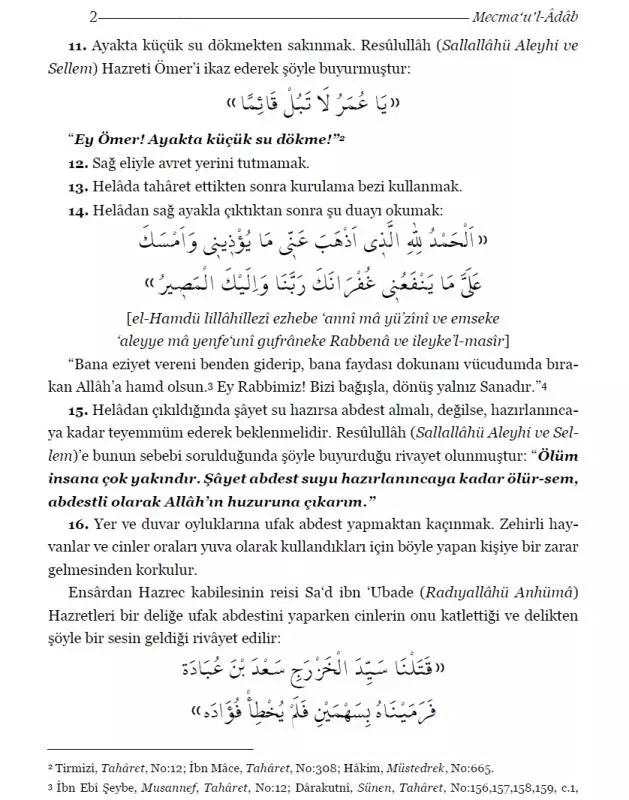 2 Mecma‘u’l-Âdâb
11. Ayakta küçük su dökmekten sakınmak. Resûlullâh (Sallallâhü Aleyhi ve
Sellem) Hazreti Ömer’i ikaz ederek şöyle buyurmuştur:
«يَا عُمَرُ لَا تَبُلْ قَائِمًا»
“Ey Ömer! Ayakta küçük su dökme!”²
12. Sağ eliyle avret yerini tutmamak.
13. Helâda tahâret ettikten sonra kurulama bezi kullanmak.
14. Helâdan sağ ayakla çıktıktan sonra şu duayı okumak:
«اَلْحَمْدُ لِلّٰهِ الَّذِى اَذْهَبَ عَنِّى مَا يُؤْذِينِى وَاَمْسَكَ
عَلَىَّ مَا يَنْفَعُنِى غُفْرَانَكَ رَبَّنَا وَاِلَيْكَ الْمَصِيرُ»
[el-Hamdü lillâhillezî ezhebe ‘annî mâ yü’zînî ve emseke
‘aleyye mâ yenfe‘unî gufrâneke Rabbenâ ve ileyke’l-masîr]
“Bana eziyet vereni benden giderip, bana faydası dokunanı vücudumda bıra-
kan Allâh’a hamd olsun.³ Ey Rabbimiz! Bizi bağışla, dönüş yalnız Sanadır.”⁴
15. Helâdan çıkıldığında şâyet su hazırsa abdest almalı, değilse, hazırlanınca-
ya kadar teyemmüm ederek beklenmelidir. Resûlullâh (Sallallâhü Aleyhi ve Sel-
lem)’e bunun sebebi sorulduğunda şöyle buyurduğu rivayet olunmuştur: “Ölüm
insana çok yakındır. Şâyet abdest suyu hazırlanıncaya kadar ölür-sem,
abdestli olarak Allâh’ın huzuruna çıkarım.”
16. Yer ve duvar oyluklarına ufak abdest yapmaktan kaçınmak. Zehirli hay-
vanlar ve cinler oraları yuva olarak kullandıkları için böyle yapan kişiye bir zarar
gelmesinden korkulur.
Ensârdan Hazrec kabilesinin reisi Sa‘d ibn ‘Ubade (Radıyallâhü Anhümâ)
Hazretleri bir deliğe ufak abdestini yaparken cinlerin onu katlettiği ve delikten
şöyle bir sesin geldiği rivâyet edilir:
«قَتَلْنَا سَيِّدَ الْخَزْرَجِ سَعْدَ بْنَ عُبَادَة
فَرَمَيْنَاهُ بِسَهْمَيْنِ فَلَمْ يُخْطِأْ فُؤَادَه»
² Tirmizî, Tahâret, No:12; İbn Mâce, Tahâret, No:308; Hâkim, Müstedrek, No:665.
³ İbn Ebî Şeybe, Musannef, Tahâret, No:12; Dârakutnî, Sünen, Tahâret, No:156,157,158,159, c.1,